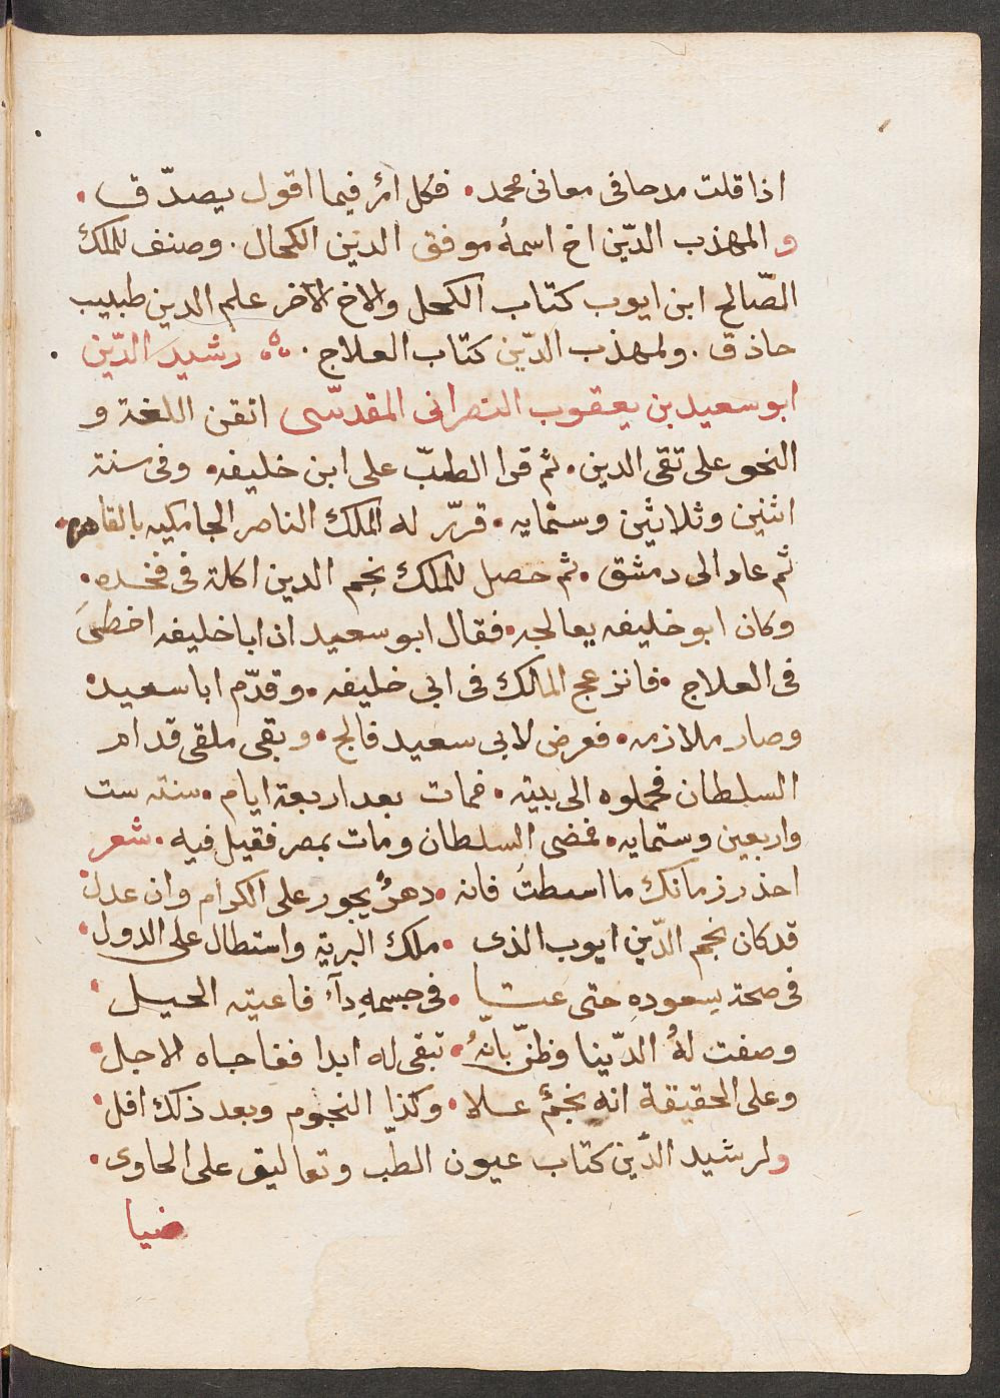 اذا قلت مدحا فى معانى محمد • فكل امرٔ فيما اقول يصدّق •
و المهذب الدّين اخ اسمهُ موفق الدين الكحال . وصنف للملك
الصّالح ابن ايوب كتاب الكحل والاخ الآخر علم الدين طبيب
حاذق . ولمهذب الدّين كتاب العلاج . ؞ رشيد الدّين
ابو سعيد بن يعقوب النصرانى المقدسّى اتقن اللغة و
النحو على تقى الدين • ثم قرا الطبّ على ابن خليفه • وفى سنة
اثنين وثلاثين وستمايه • قرّر له الملك الناصر الجامكيه بالقاهره •
ثم عاد الى دمشق • ثم حصل للملك نجم الدين اكلة فى فخده •
وكان ابو خليفه يعالجه • فقال ابو سعيد ان ابا خليفه اخطىَ
فى العلاج • فانزعج المالك فى ابى خليفه • وقدّم ابا سعيد •
وصار ملازمه • فعرض لابى سعيد فالج • وبقى ملقى قدام
السلطان فحملوه الى بيته • فمات بعد اربعة ايام • سنته ست
واربعين وستمايه • فمضى السلطان ومات بمصر فقيل فيه • شعر
احذر زمانك ما اسطتَ فانه • دهرٌ يجور على الكرام وان عدل •
قد كان نجم الدّين ايوب الذى • ملك البرية واستطال على الدول •
فى صحة بسعودهِ حتى عتا • فى جسمهِ دآء فاعيته الحيل •
وصفت لهُ الدّينا وظنّ بانّهُ • تبقى له ابدا ففاجاه الاجل •
وعلى الحقيقة انه نجمٌ علا • وكذا النجوم وبعد ذلك افل •
ولرشيد الدّين كتاب عيون الطبّ وتعاليق على الحاوى •
ضيا